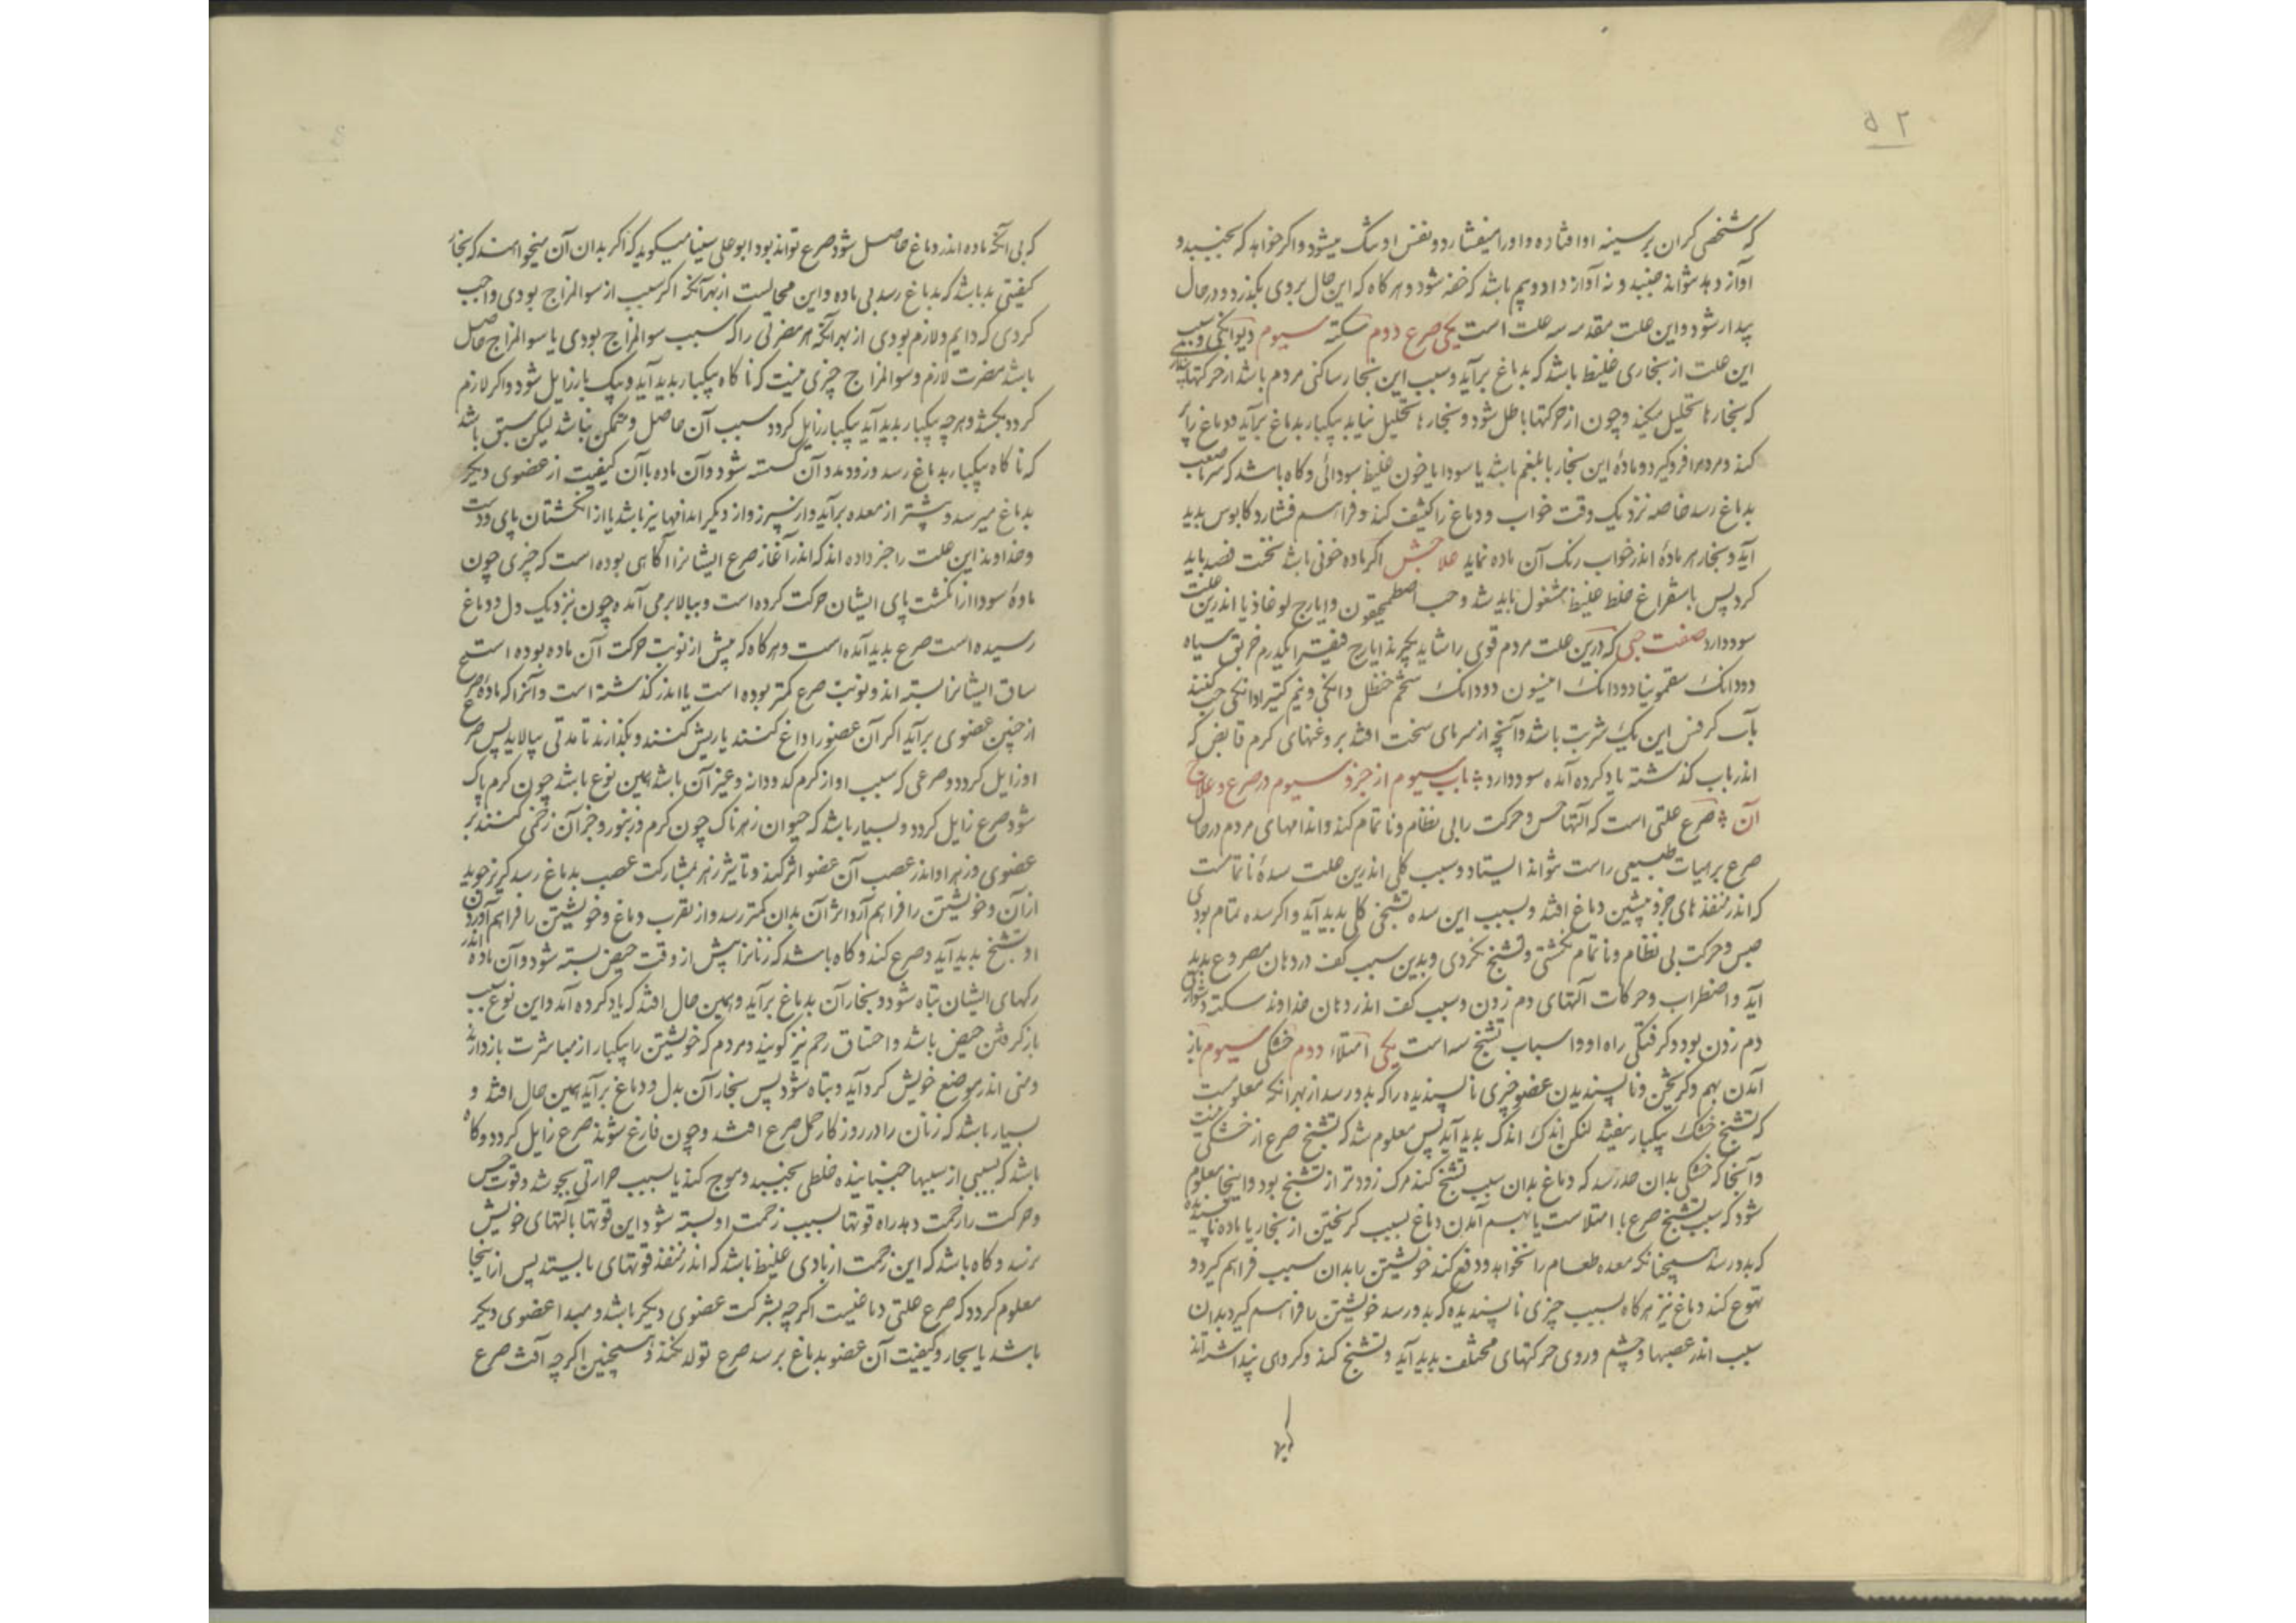 ۵۲
که شخصی گران بر سینه او افتاده و او را میفشارد و نفس او تنگ میشود و اگر خواهد که بجنبد و
آواز دهد نتواند جنبید و نه آواز داد و بیم باشد که خفه شود و هرگاه که این حال بروی بگذرد در حال
بیدار شود و این علت مقدمه سه علت است یکی صرع دوم سکته سیوم دیوانگی و سبب
این علت از بخاری غلیظ باشد که بدماغ برآید و سبب این بخار ساکنی مردم باشد از حرکتها
که بخارها تحلیل میکند و چون از حرکتها باطل شود و بخارها تحلیل نیابد بیکبار بدماغ برآید و دماغ را پر
کند و مردم را فرو گیرد و ماده این بخار یا بلغم باشد یا سودا یا خون غلیظ سودائی و گاه باشد که سرمای صعب
بدماغ رسد خاصه نزدیک وقت خواب و دماغ را کثیف کند و فراهم فشارد کابوس پدید
آید و بخار هر مادهٔ اندر خواب رنگ آن ماده نماید علاجش اگر ماده خونی باشد نخست فصد باید
کرد پس باستفراغ خلط غلیظ مشغول باید شد و حب اصطمحیقون و ایارج لوغاذیا اندرین علت
سود دارد صفت حبی که درین علت مردم قوی را شاید بگیرند ایارج فیقرا یکدرم خربق سیاه
دودانگ سقمونیا دودانگ انیسون دودانگ شحم حنظل دانگی و نیم کتیرا دانگی حب کنند
بآب کرفس این یک شربت باشد و آنچه از سرمای سخت افتد بروغنهای گرم قابض که
اندر باب گذشته یاد کرده آمده سود دارد باب سیوم از جزو سیوم در صرع و علاج
آن صرع علتی است که آلتها حس و حرکت را بی نظام و ناتمام کند و اندامهای مردم در حال
صرع بر هیات طبیعی راست نتواند ایستاد و سبب کلی اندرین علت سدهٔ ناتمامست
که اندر منفذهای جزو پیشین دماغ افتد و بسبب این سده تشنجی کلی پدید آید و اگر سده تمام بودی
حس و حرکت بی نظام و ناتمام نگشتی و تشنج نکردی و بدین سبب کف در دهان مصروع پدید
آید و اضطراب و حرکات آلتهای دم زدن و سبب کف اندر دهان خداوند سکته دشواری
دم زدن بود و گرفتگی راه او و اسباب تشنج سه است یکی امتلاء دوم خشکی سیوم باز
آمدن بهم و گریختن و ناپسندیدن عضو چیزی ناپسندیده را که بدو رسد از بهر آنکه معلومست
که تشنج خشک بیکبار نیفتد لکن اندک اندک پدید آید پس معلوم شد که تشنج صرع از خشکی نیست
و آنجا که خشکی بدان حد رسد که دماغ بدان سبب تشنج کند مرگ زودتر از تشنج بود و اینجا معلوم
شود که سبب تشنج صرع یا امتلاست یا بهم آمدن دماغ بسبب گریختن از بخار یا ماده ناپسندیده
که بدو رسد همچنانکه معده طعام را نخواهد و دفع کند خویشتن را بدان سبب فراهم گیرد و
تهوع کند دماغ نیز هرگاه بسبب چیزی ناپسندیده که بدو رسد خویشتن را فراهم گیرد بدان
سبب اندر عصبها و چشم و روی حرکتهای مختلف پدید آید و تشنج کند و گروهی پنداشته اند
که بی آنکه ماده اندر دماغ حاصل شود صرع تواند بود ابو علی سینا میگوید که اگر بدان آن میخواهند که بخار
کیفیتی بد باشد که بدماغ رسد بی ماده و این محالست از بهر آنکه اگر سبب از سوالمزاج بودی واجب
کردی که دایم و لازم بودی از بهر آنکه هر مضرتی را که سبب سوالمزاج بودی یا سوالمزاج حاصل
باشد مضرت لازم و سوالمزاج چیزی نیست که ناگاه بیکبار پدید آید و بیک بار زایل شود و اگر لازم
گردد بکشد و هرچه بیکبار پدید آید بیکبار زایل گردد سبب آن حاصل و متمکن نباشد لیکن سبق باشد
که ناگاه بیکبار بدماغ رسد و زود مدد آن گسسته شود و آن ماده با آن کیفیت از عضوی دیگر
بدماغ میرسد و بیشتر از معده برآید و از سپرز و از دیگر اندامها نیز باشد یا از انگشتان پای و دست
و خداوند این علت را خبر داده اند که اندر آغاز صرع ایشانرا آگاهی بوده است که چیزی چون
مادهٔ سودا از انگشت پای ایشان حرکت کرده است و ببالا برمی آمده چون نزدیک دل و دماغ
رسیده است صرع پدید آمده است و هرگاه که پیش از نوبت حرکت آن ماده بوده است
ساق ایشانرا بسته اند و نوبت صرع کمتر بوده است یا اندر گذشته است و آنرا که مادهٔ صرع
از چنین عضوی برآید اگر آن عضو را داغ کنند یا ریش کنند و بگذارند تا مدتی بپالاید پس صرع
او زایل گردد و صرعی که سبب او از کرم کدودانه و غیر آن باشد همین نوع باشد چون کرم پاک
شود صرع زایل گردد و بسیار باشد که حیوان زهرناک چون کژدم و زنبور و جز آن زخمی کنند بر
عضوی و زهر او اندر عصب آن عضو اثر کند و تاثیر زهر بمشارکت عصب بدماغ رسد گریز جوید
از آن و خویشتن را فراهم آرد و اثر آن بدان کمتر رسد و از تقرب دماغ و خویشتن را فراهم آوردن
او تشنج پدید آید و صرع کند و گاه باشد که زنانرا پیش از وقت حیض بسته شود و آن ماده اندر
رگهای ایشان تباه شود و بخار آن بدماغ برآید و همین حال افتد که یاد کرده آمد و این نوع سبب
باز گرفتن حیض باشد و اختناق رحم نیز گویند و مردم که خویشتن را بیکبار از مباشرت باز دارند
و منی اندر موضع خویش گرد آید و تباه شود پس بخار آن بدل و دماغ برآید همین حال افتد و
بسیار باشد که زنان را در روزگار حمل صرع افتد و چون فارغ شوند صرع زایل گردد و گاه
باشد که بسببی از سببها جنباننده خلطی بجنبد و موج کند یا بسبب حرارتی بجوشد و قوت حس
و حرکت را زحمت دهد راه قوتها بسبب زحمت او بسته شود این قوتها بآلتهای خویش
نرسد و گاه باشد که این زحمت از بادی غلیظ باشد که اندر منفذ قوتهای بایستد پس از اینجا
معلوم گردد که صرع علتی دماغیست اگرچه بشرکت عضوی دیگر باشد و مبدا عضوی دیگر
باشد یا بخار و کیفیت آن عضو بدماغ برسد صرع تولد نکند و همچنین اگرچه آفت صرع